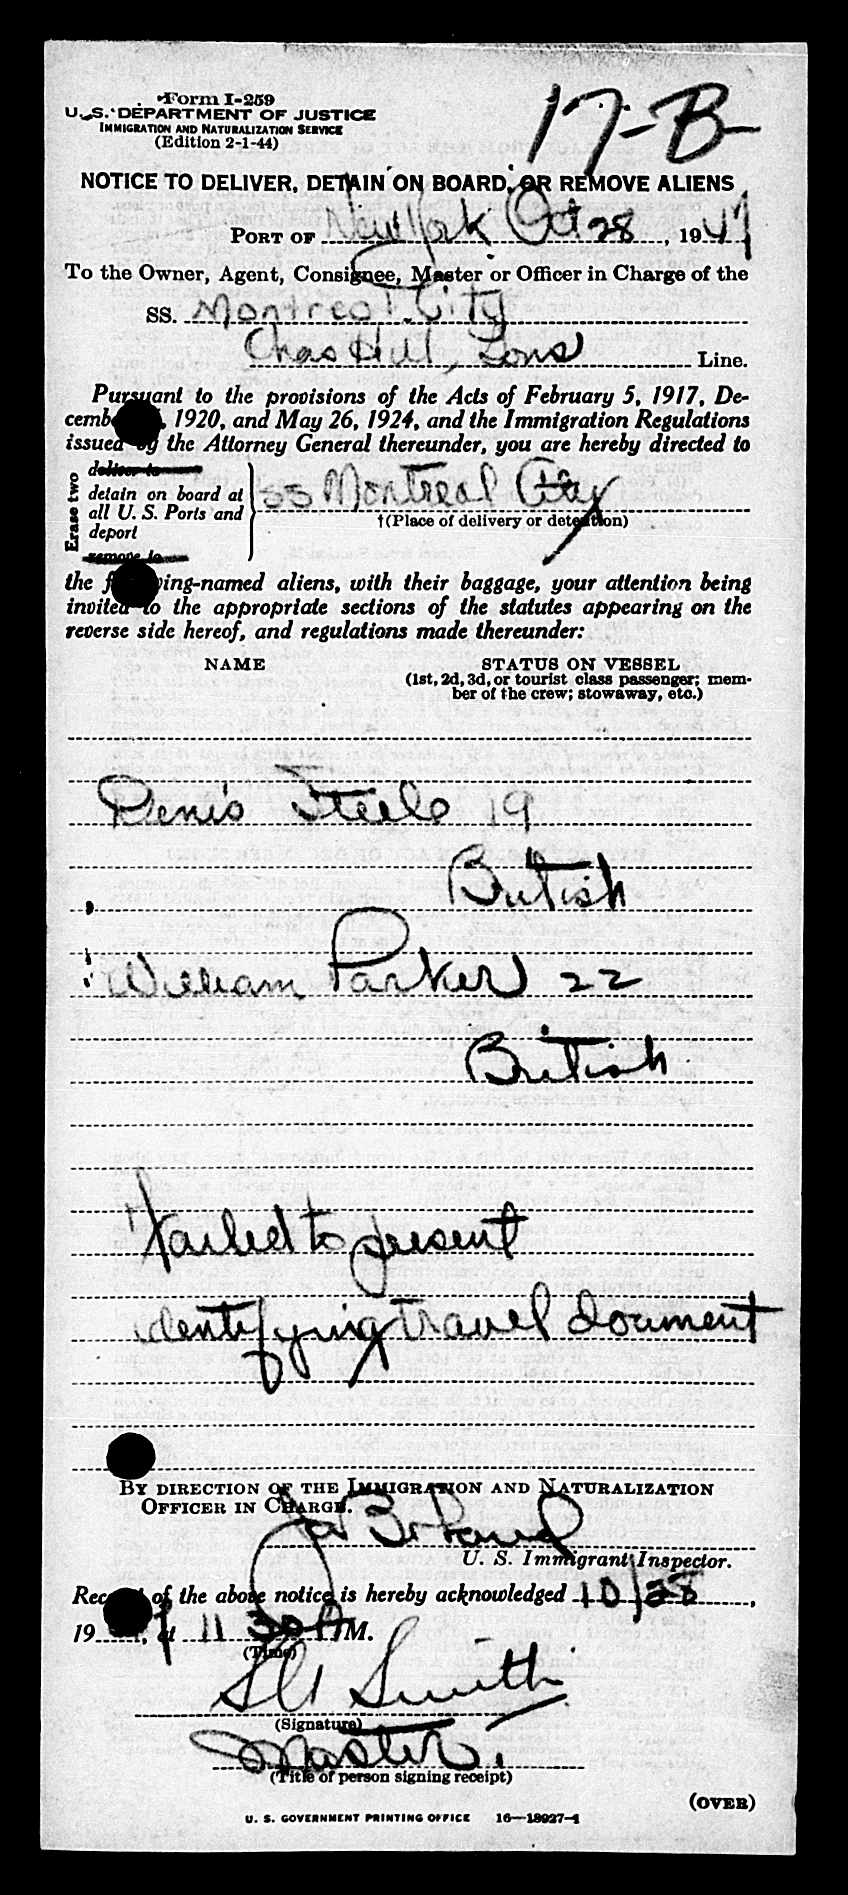 Form I-259
U. S. DEPARTMENT OF JUSTICE
IMMIGRATION AND NATURALIZATION SERVICE
(Edition 2-1-44)
17-B-
NOTICE TO DELIVER, DETAIN ON BOARD, OR REMOVE ALIENS
PORT OF New York Oct 28, 1947
To the Owner, Agent, Consignee, Master or Officer in Charge of the
SS. Montreal City
Chas Hill, Sons Line.
Pursuant to the provisions of the Acts of February 5, 1917, De-
cemb , 1920, and May 26, 1924, and the Immigration Regulations
issued by the Attorney General thereunder, you are hereby directed to
Erase two
deliver to
detain on board at
all U. S. Ports and
deport
remove to
SS Montreal City
†(Place of delivery or detention)
the f wing-named aliens, with their baggage, your attention being
invited to the appropriate sections of the statutes appearing on the
reverse side hereof, and regulations made thereunder:
NAME STATUS ON VESSEL
(1st, 2d, 3d, or tourist class passenger; mem-
ber of the crew; stowaway, etc.)
Denis Steele 19
British
William Parker 22
British
Failed to present
identifying travel document
BY DIRECTION OF THE IMMIGRATION AND NATURALIZATION
OFFICER IN CHARGE.
U. S. Immigrant Inspector.
Rec of the above notice is hereby acknowledged 10/28,
19 7, at 11 30 A M.
(Time)
Smith
(Signature)
Master
(Title of person signing receipt)
(OVER)
U. S. GOVERNMENT PRINTING OFFICE 16—18927-1